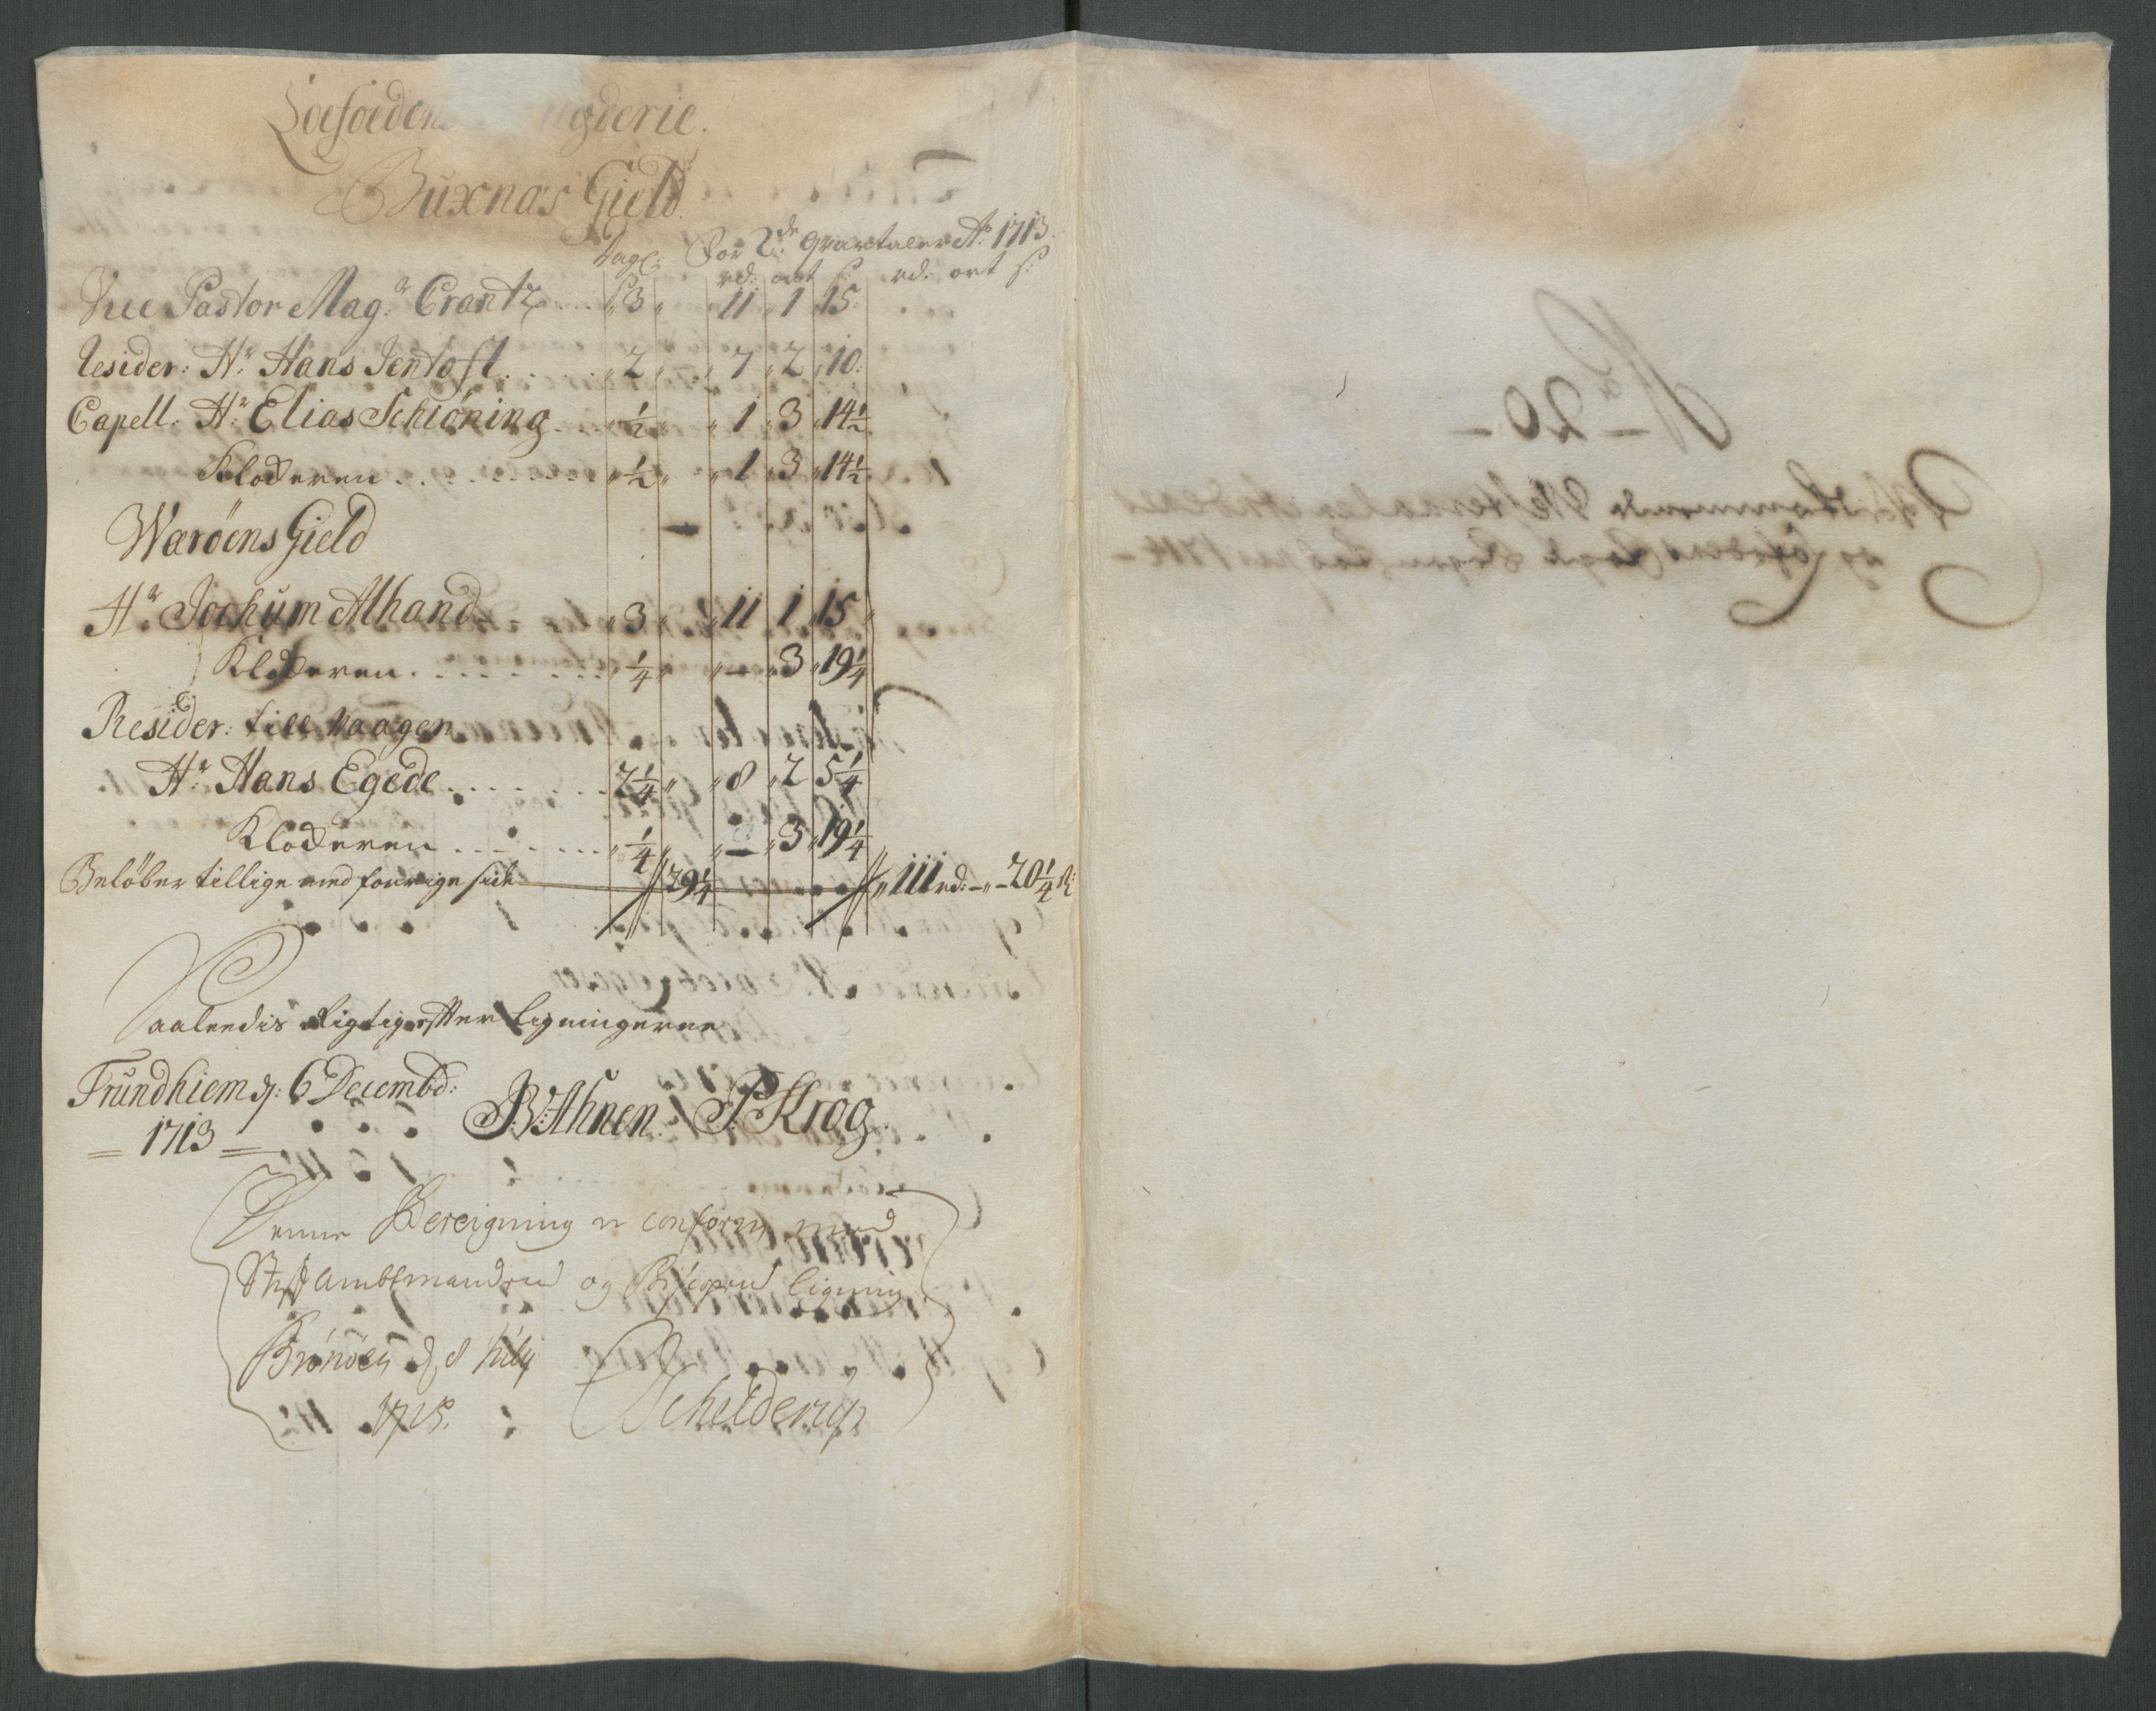 Loefoedens ugderie.
Buxnæs Gield.
Vogl: For 2de Qvartaler Ao 1713.
rd: ort s: rd: ort s:
Vice Pastor Magr Crantz .... 3 11 1 15
Resider: Hr Hans Jentoft ..... 2 7 2 10
Capell: Hr Elias Schiöning .. ½ 1 3 14½
Klockeren ........... ½ 1 3 14½
Waröens Gield —
Hr Jochum Alhand 3 11 1 15
Klockeren ......... ¼ — 3 19¼
Resider: till Vaagen
Hr Hans Egede ....... 2¼ 8 2 5¼
Klockeren ........ ¼ — 3 19¼
Beløber tillige med forrige side 29¼ 111 rd: - „ - 20¼ s:
Saaledis Rigtig efter Ligningerne
Trundhiem d: 6 Decembr:
= 1713 = JBVAhnen. PKrog.
Denne Bereigning er conform med
Stiftambtmandens og Bispens ligning
Brönöen d 8 July
1715. Schelderup
No 20
og Loefodens Fogd